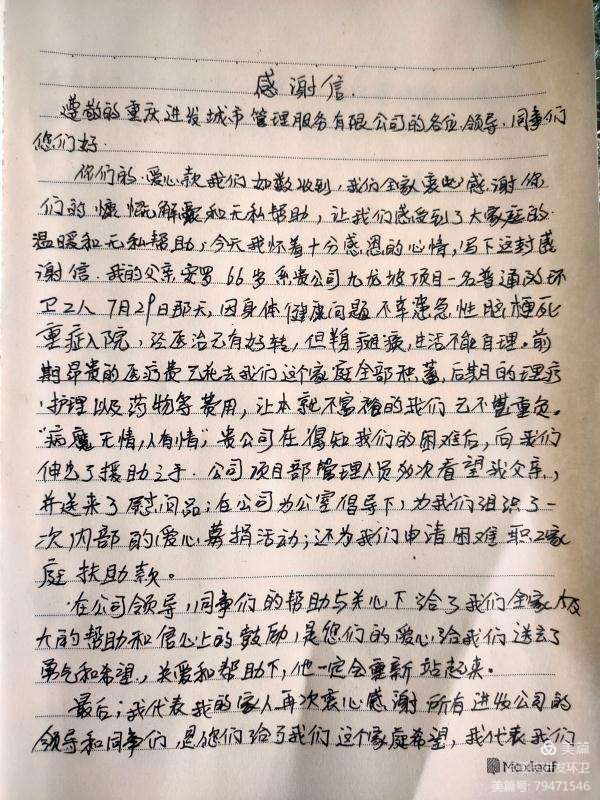 感谢信.
尊敬的重庆进发城市管理服务有限公司的各位领导、同事们
您们好.
你们的爱心款我们如数收到，我们全家衷心感谢你
们的慷慨解囊和无私帮助，让我们感受到了大家庭的
温暖和无私帮助，今天我怀着十分感恩的心情，写下这封感
谢信.我的父亲 66岁系贵公司九龙坡项目一名普通的环
卫工人 7月29日那天，因身体健康问题不幸患急性脑梗死
重症入院，经医治已有好转，但半身瘫痪，生活不能自理。前
期昂贵的医疗费已花去我们这个家庭全部积蓄，后期的理疗
护理以及药物等费用，让本就不富裕的我们已不堪重负。
"病魔无情，人有情"，贵公司在得知我们的困难后，向我们
伸出了援助之手.公司项目部管理人员多次看望我父亲，
并送来了慰问品；在公司办公室倡导下，为我们组织了一
次内部的爱心募捐活动；还为我们申请困难职工家
庭扶助款。
在公司领导，同事们的帮助与关心下给了我们全家极
大的帮助和信心上的鼓励，是您们的爱心给我们送去了
勇气和希望，关爱和帮助下，他一定会重新站起来。
最后；我代表我的家人再次衷心感谢所有进发公司的
领导和同事们是你们给了我们这个家庭希望，我代表我们
美篇
Maxleaf
美篇号: 79471546